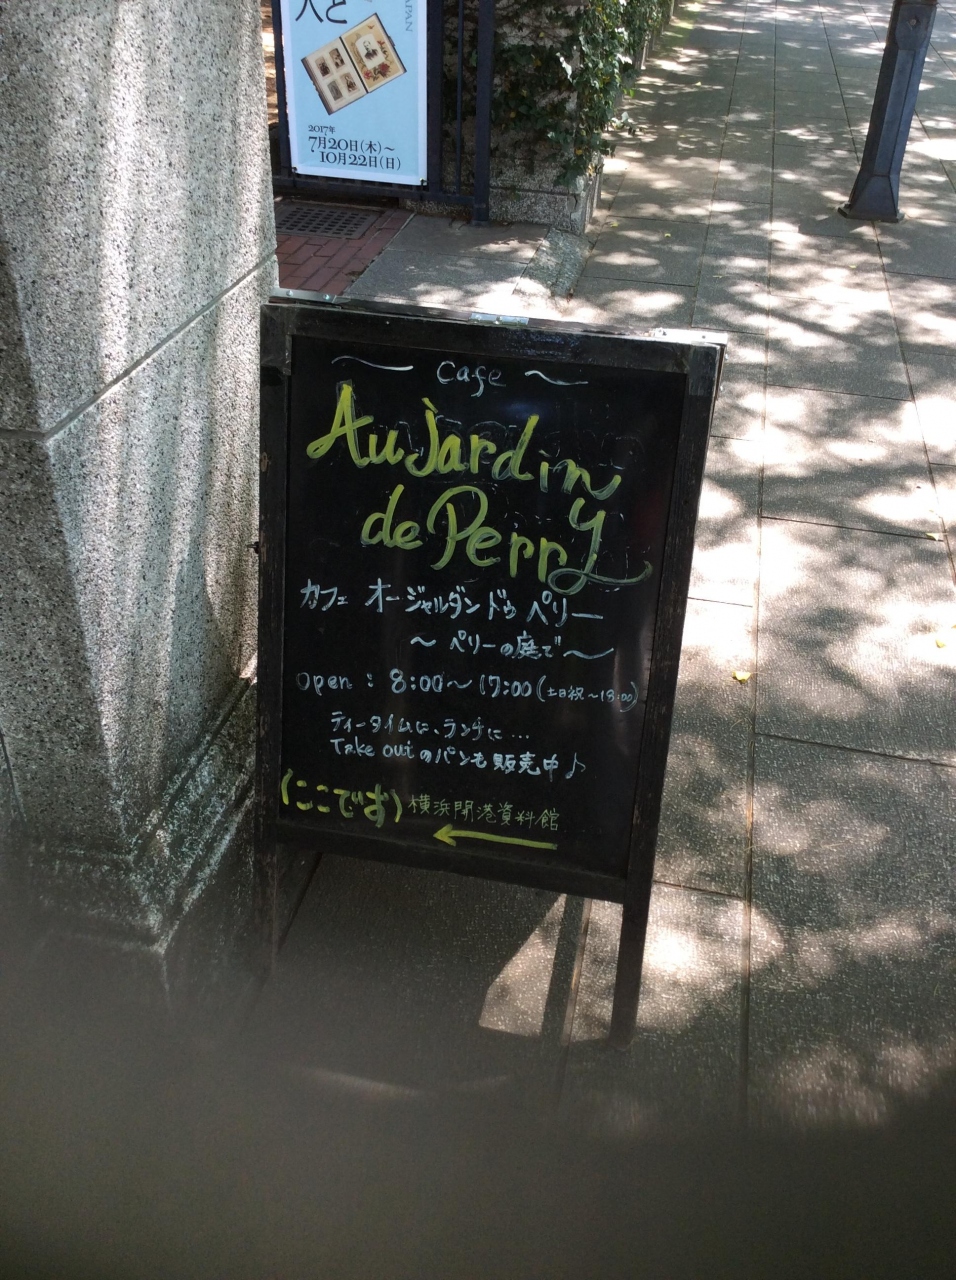 人と
APAN
2017年
7月20日(木)~
10月22日(日)
~ Cafe ~
Au Jardin
de Perry
カフェ オージャルダン ドゥ ペリー
~ ペリーの庭で ~
open : 8:00~17:00(土日祝~18:00)
ティータイムに、ランチに…
Take outのパンも販売中♪
(ここです) 横浜開港資料館
←